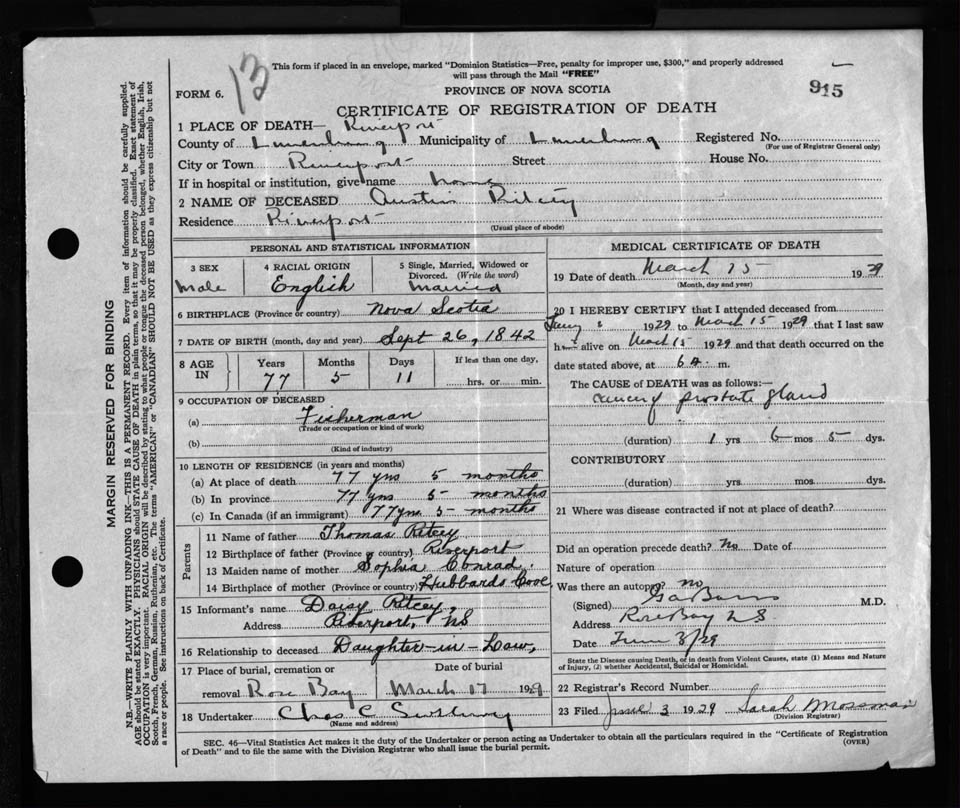 13
This form if placed in an envelope, marked "Dominion Statistics—Free, penalty for improper use, $300," and properly addressed
will pass through the Mail "FREE"
915
FORM 6.
PROVINCE OF NOVA SCOTIA
CERTIFICATE OF REGISTRATION OF DEATH
1 PLACE OF DEATH— Riverport
County of Lunenburg Municipality of Lunenburg Registered No.
(For use of Registrar General only)
City or Town Riverport Street House No.
If in hospital or institution, give name home
2 NAME OF DECEASED Austin Ritcey
Residence Riverport
(Usual place of abode)
PERSONAL AND STATISTICAL INFORMATION
3 SEX 4 RACIAL ORIGIN 5 Single, Married, Widowed or
Divorced. (Write the word)
Male English Married
6 BIRTHPLACE (Province or country) Nova Scotia
7 DATE OF BIRTH (month, day and year) Sept 26, 1842
8 AGE IN Years Months Days If less than one day,
77 5 11 hrs. or min.
9 OCCUPATION OF DECEASED
(a) Fisherman
(Trade or occupation or kind of work)
(b)
(Kind of industry)
10 LENGTH OF RESIDENCE (in years and months)
(a) At place of death 77 yrs 5 months
(b) In province 77 yrs 5 months
(c) In Canada (if an immigrant) 77 yrs 5 months
Parents
11 Name of father Thomas Ritcey
12 Birthplace of father (Province or country) Riverport
13 Maiden name of mother Sophia Conrad
14 Birthplace of mother (Province or country) Hubbards Cove
15 Informant's name Daisy Ritcey,
Address Riverport, NS
16 Relationship to deceased Daughter-in-Law,
17 Place of burial, cremation or Date of burial
removal Rose Bay March 17 1929
18 Undertaker Chas C
(Name and address)
MEDICAL CERTIFICATE OF DEATH
19 Date of death March 15 1929
(Month, day and year)
20 I HEREBY CERTIFY that I attended deceased from
1929 to March 15 1929 that I last saw
him alive on March 15 1929 and that death occurred on the
date stated above, at 6 A. m.
The CAUSE of DEATH was as follows:—
Cancer of prostate gland
(duration) 1 yrs 6 mos 5 dys.
CONTRIBUTORY
(duration) yrs mos dys.
21 Where was disease contracted if not at place of death?
Did an operation precede death? No Date of
Nature of operation
Was there an autopsy? no
(Signed) M.D.
Address Rose Bay N S
Date June 3/29
State the Disease causing Death, or in death from Violent Causes, state (1) Means and Nature
of Injury, (2) whether Accidental, Suicidal or Homicidal.
22 Registrar's Record Number
23 Filed June 3 1929 Sarah Mossman
(Division Registrar)
SEC. 46—Vital Statistics Act makes it the duty of the Undertaker or person acting as Undertaker to obtain all the particulars required in the "Certificate of Registration
of Death" and to file the same with the Division Registrar who shall issue the burial permit.
(OVER)
MARGIN RESERVED FOR BINDING
N.B.—WRITE PLAINLY WITH UNFADING INK—THIS IS A PERMANENT RECORD. Every item of information should be carefully supplied.
AGE should be stated EXACTLY. PHYSICIANS should STATE CAUSE OF DEATH in plain terms, so that it may be properly classified. Exact statement of
OCCUPATION is very important. RACIAL ORIGIN will be described by stating to what people or tongue the deceased person belonged, whether English, Irish,
Scotch, French, German, Russian, Ruthenian, etc. The terms "AMERICAN" or "CANADIAN" SHOULD NOT BE USED as they express citizenship but not
a race or people. See instructions on back of Certificate.